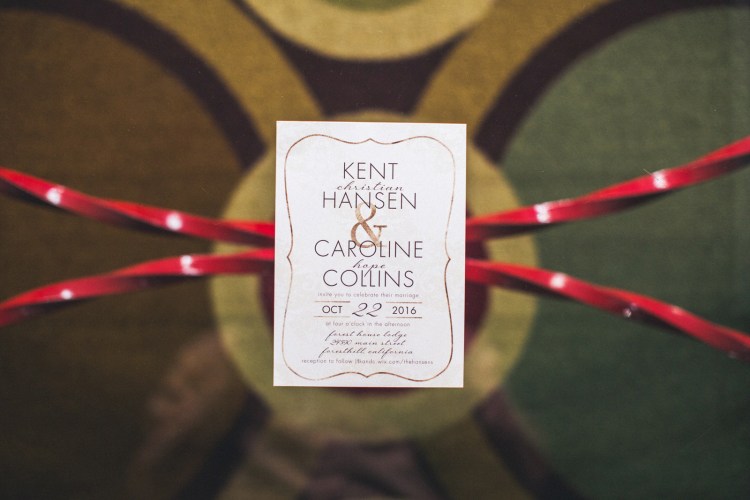 KENT
christian
HANSEN
&
CAROLINE
hope
COLLINS
invite you to celebrate their marriage
OCT 22 2016
at four o'clock in the afternoon
forest house lodge
main street
foresthill, california
reception to follow